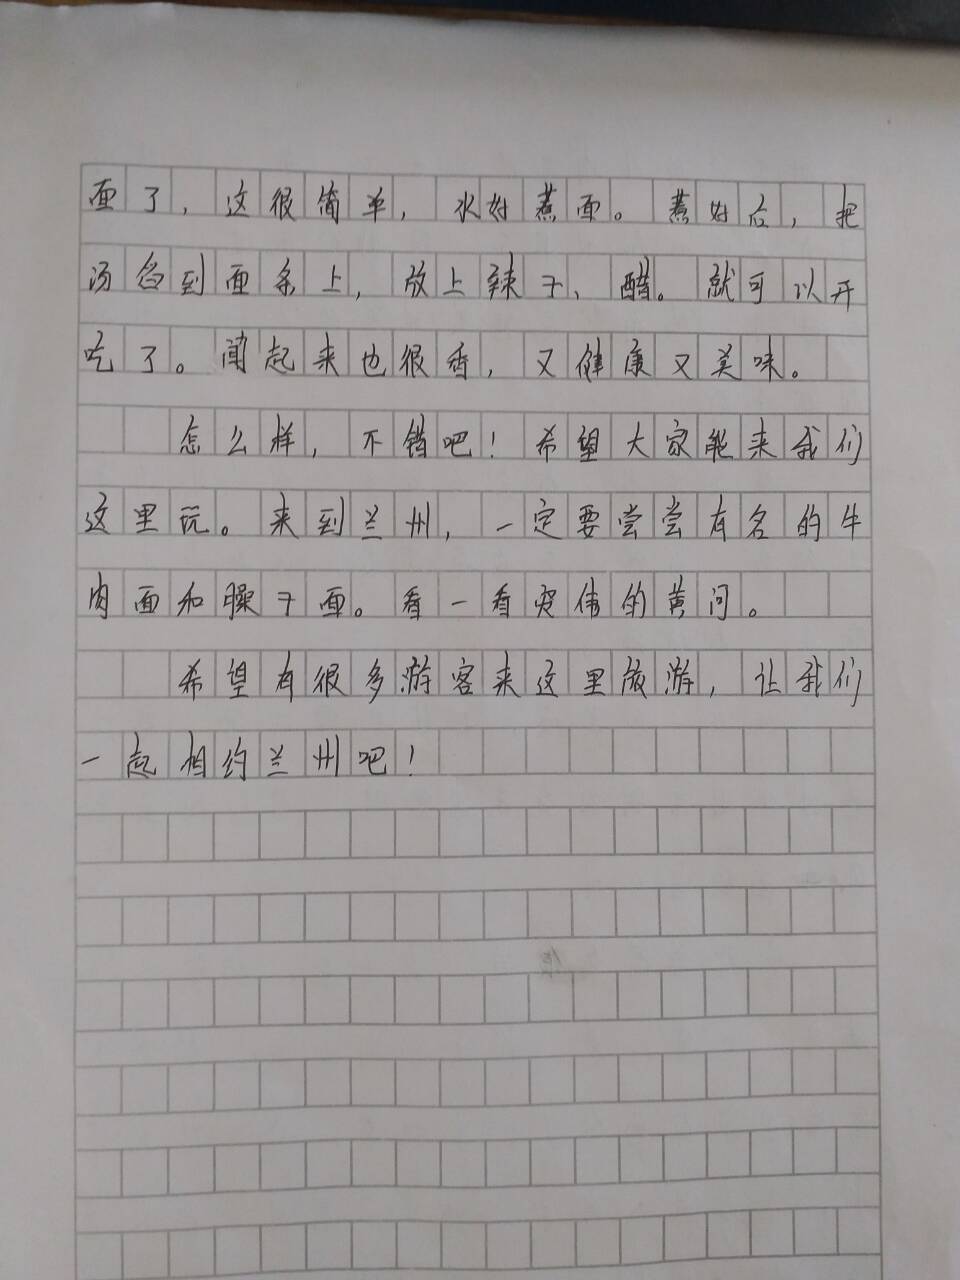 面了，这很简单，水好煮面。煮好后，把
汤舀到面条上，放上辣子、醋。就可以开
吃了。闻起来也很香，又健康又美味。
怎么样，不错吧！希望大家能来我们
这里玩。来到兰州，一定要尝尝有名的牛
肉面和臊子面。看一看伟的黄河。
希望有很多游客来这里旅游，让我们
一起相约兰州吧！